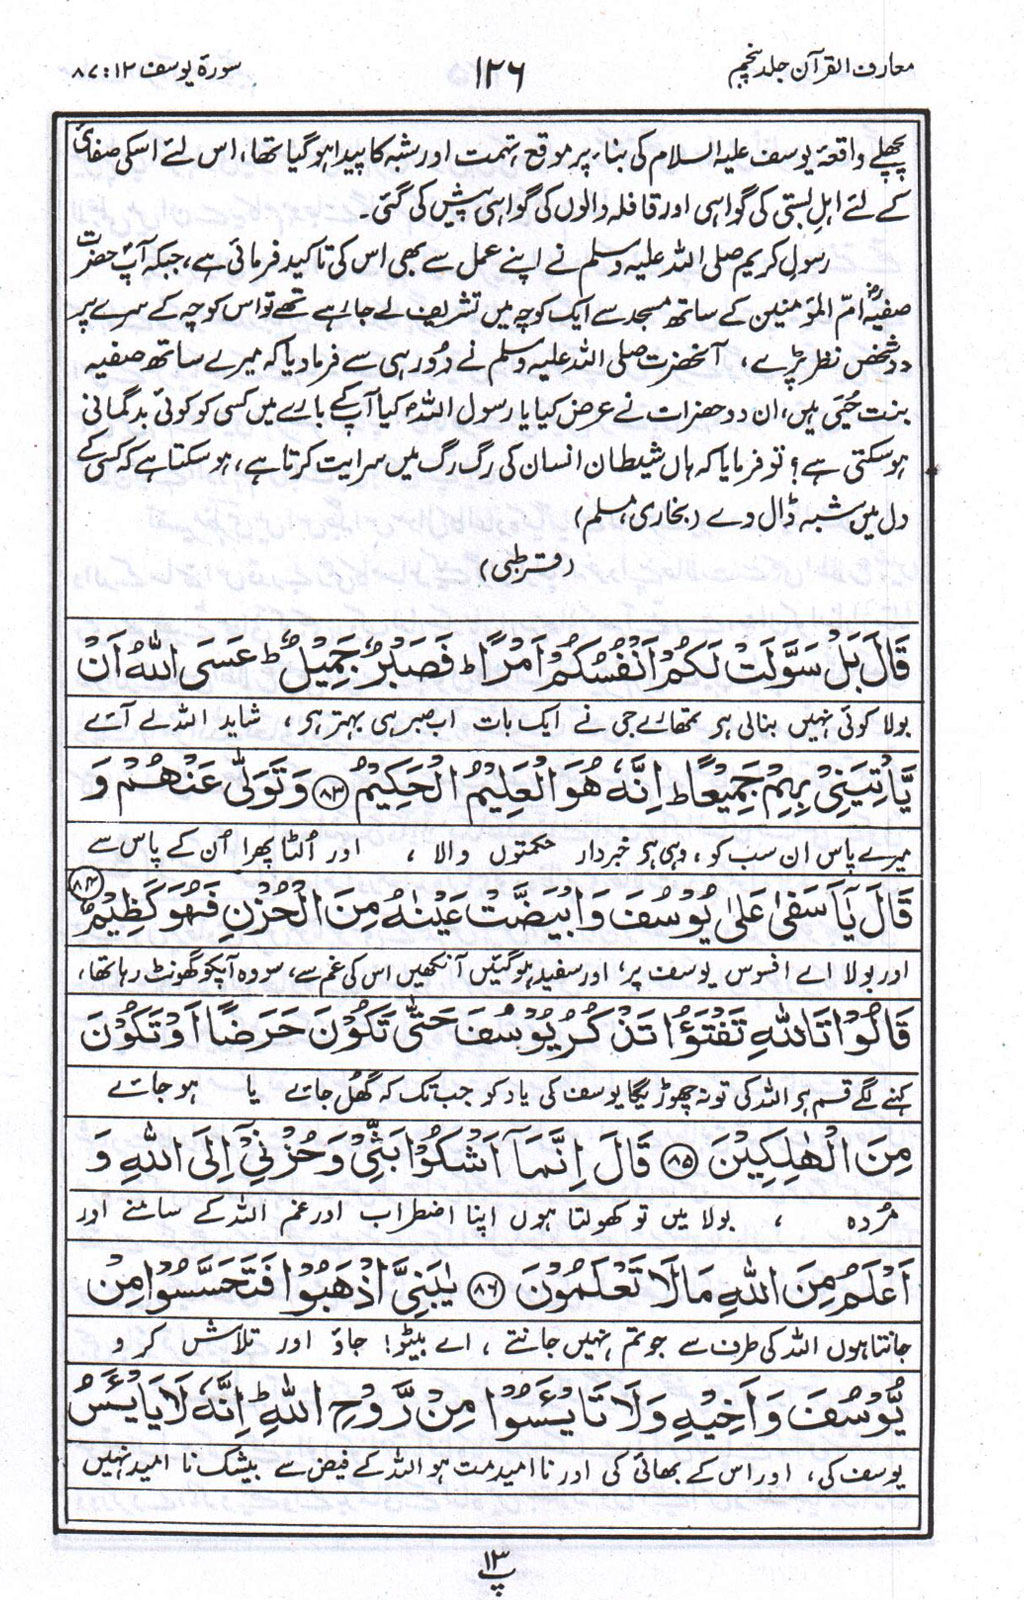 معارف القرآن جلد پنجم
۱۲۶
سورۃ یوسف ۱۲ : ۸۷
پچھلے واقعۂ یوسف علیہ السلام کی بناء پر موقع تہمت اور شبہ کا پیدا ہو گیا تھا، اس لئے اسکی صفائی
کے لئے اہلِ بستی کی گواہی اور قافلہ والوں کی گواہی پیش کی گئی۔
رسول کریم صلی اللہ علیہ وسلم نے اپنے عمل سے بھی اس کی تاکید فرمائی ہے، جبکہ آپؐ حضرت
صفیہؓ امّ المؤمنین کے ساتھ مسجد سے ایک کوچہ میں تشریف لے جا رہے تھے تو اس کوچہ کے سرے پر
دو شخص نظر پڑے، آنحضرت صلی اللہ علیہ وسلم نے دُور ہی سے فرما دیا کہ میرے ساتھ صفیہ
بنت حُیَی ہیں، ان دو حضرات نے عرض کیا یا رسول اللہؐ کیا آپ کے بارے میں کسی کو کوئی بدگمانی
ہو سکتی ہے؟ تو فرمایا کہ ہاں شیطان انسان کی رگ رگ میں سرایت کرتا ہے، ہو سکتا ہے کہ کسی کے
دل میں شبہ ڈال دے (بخاری، مسلم)
(قرطبی)
قَالَ بَلْ سَوَّلَتْ لَكُمْ اَنْفُسُكُمْ اَمْرًا ؕ فَصَبْرٌ جَمِیْلٌ ؕ عَسَی اللّٰهُ اَنْ
بولا کوئی نہیں بنالی ہر تمھارے جی نے ایک بات اب صبر ہی بہتر ہر، شاید اللہ لے آئے
یَّاْتِیَنِیْ بِهِمْ جَمِیْعًا ؕ اِنَّهٗ هُوَ الْعَلِیْمُ الْحَكِیْمُ ﴿۸۳﴾ وَتَوَلّٰی عَنْهُمْ وَ
میرے پاس ان سب کو، وہی ہر خبردار حکمتوں والا، اور اُلٹا پھرا اُن کے پاس سے
قَالَ یٰۤاَسَفٰی عَلٰی یُوْسُفَ وَابْیَضَّتْ عَیْنٰهُ مِنَ الْحُزْنِ فَهُوَ كَظِیْمٌ ﴿۸۴﴾
اور بولا اے افسوس یوسف پر، اور سفید ہو گئیں آنکھیں اس کی غم سے، سو وہ آپکو گھونٹ رہا تھا،
قَالُوْا تَاللّٰهِ تَفْتَؤُا تَذْكُرُ یُوْسُفَ حَتّٰی تَكُوْنَ حَرَضًا اَوْ تَكُوْنَ
کہنے لگے قسم ہر اللہ کی تو نہ چھوڑیگا یوسف کی یاد کو جب تک کہ گھُل جائے یا ہو جائے
مِنَ الْهٰلِكِیْنَ ﴿۸۵﴾ قَالَ اِنَّمَاۤ اَشْكُوْا بَثِّیْ وَحُزْنِیْۤ اِلَی اللّٰهِ وَ
مُردہ، بولا میں تو کھولتا ہوں اپنا اضطراب اور غم اللہ کے سامنے اور
اَعْلَمُ مِنَ اللّٰهِ مَا لَا تَعْلَمُوْنَ ﴿۸۶﴾ یٰبَنِیَّ اذْهَبُوْا فَتَحَسَّسُوْا مِنْ
جانتا ہوں اللہ کی طرف سے جو تم نہیں جانتے، اے بیٹو! جاؤ اور تلاش کرو
یُّوْسُفَ وَاَخِیْهِ وَلَا تَایْـَٔسُوْا مِنْ رَّوْحِ اللّٰهِ ؕ اِنَّهٗ لَا یَایْـَٔسُ
یوسف کی، اور اس کے بھائی کی اور نا امید مت ہو اللہ کے فیض سے بیشک نا امید نہیں
۱۳
پ